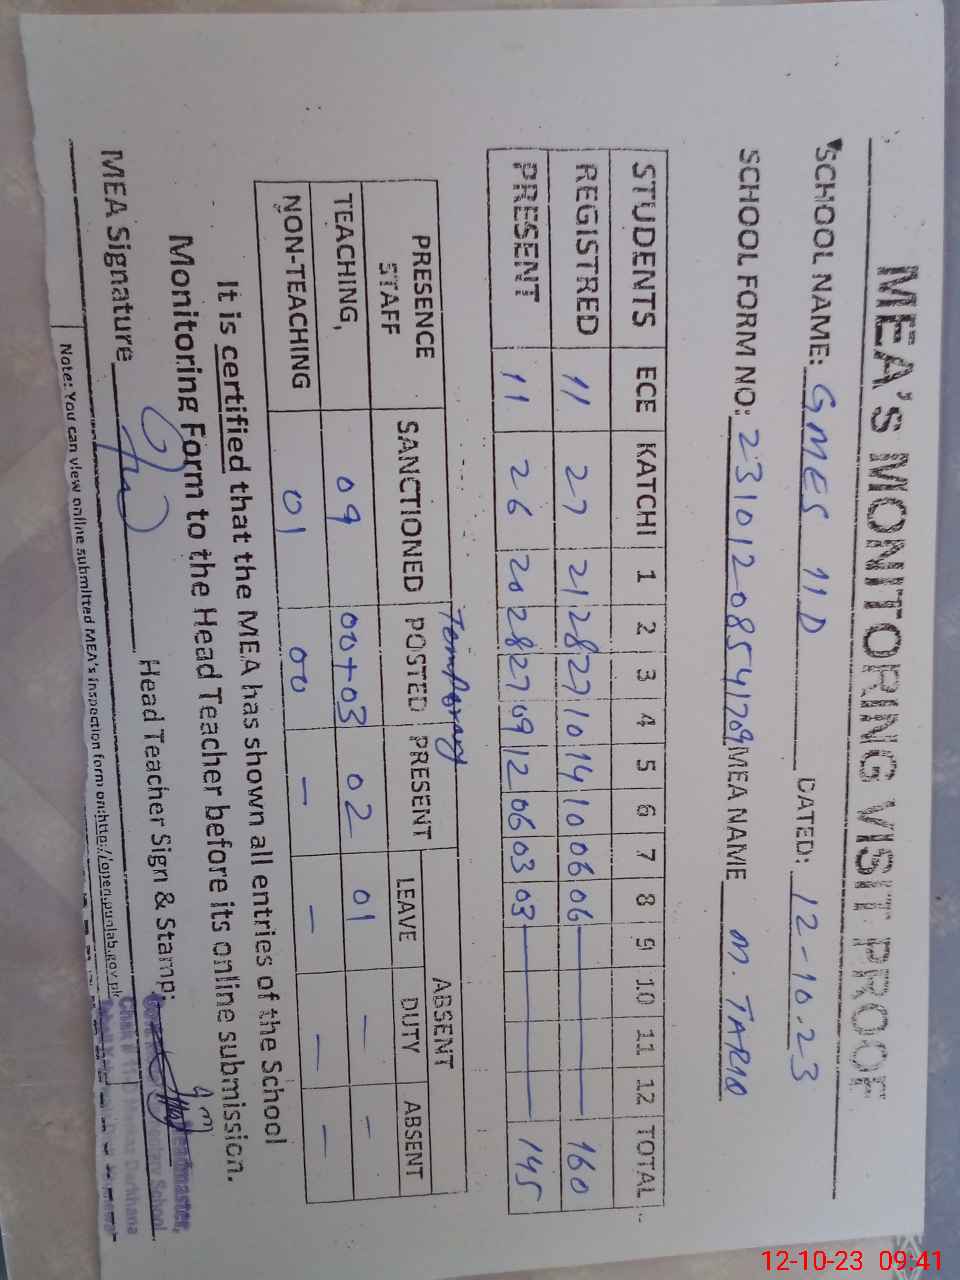 MEA'S MONITORING VISIT PROOF
SCHOOL NAME: GMES 11D DATED: 12-10-23
SCHOOL FORM NO: 23101208541709 MEA NAME M. TARIQ
STUDENTS ECE KATCHI 1 2 3 4 5 6 7 8 9 10 11 12 TOTAL
REGISTRED 11 27 21 28 27 10 14 10 06 06 160
PRESENT 11 26 20 28 27 09 12 06 03 03 145
Temporary
PRESENCE STAFF SANCTIONED POSTED PRESENT ABSENT
LEAVE DUTY ABSENT
TEACHING, 09 00+03 02 01 - -
NON-TEACHING 01 00 - - - -
It is certified that the MEA has shown all entries of the School
Monitoring Form to the Head Teacher before its online submission.
MEA Signature Head Teacher Sign & Stamp:
Headmaster,
School
Note: You can view online submitted MEA's inspection form on:http://open.punjab.gov.pk
12-10-23 09:41